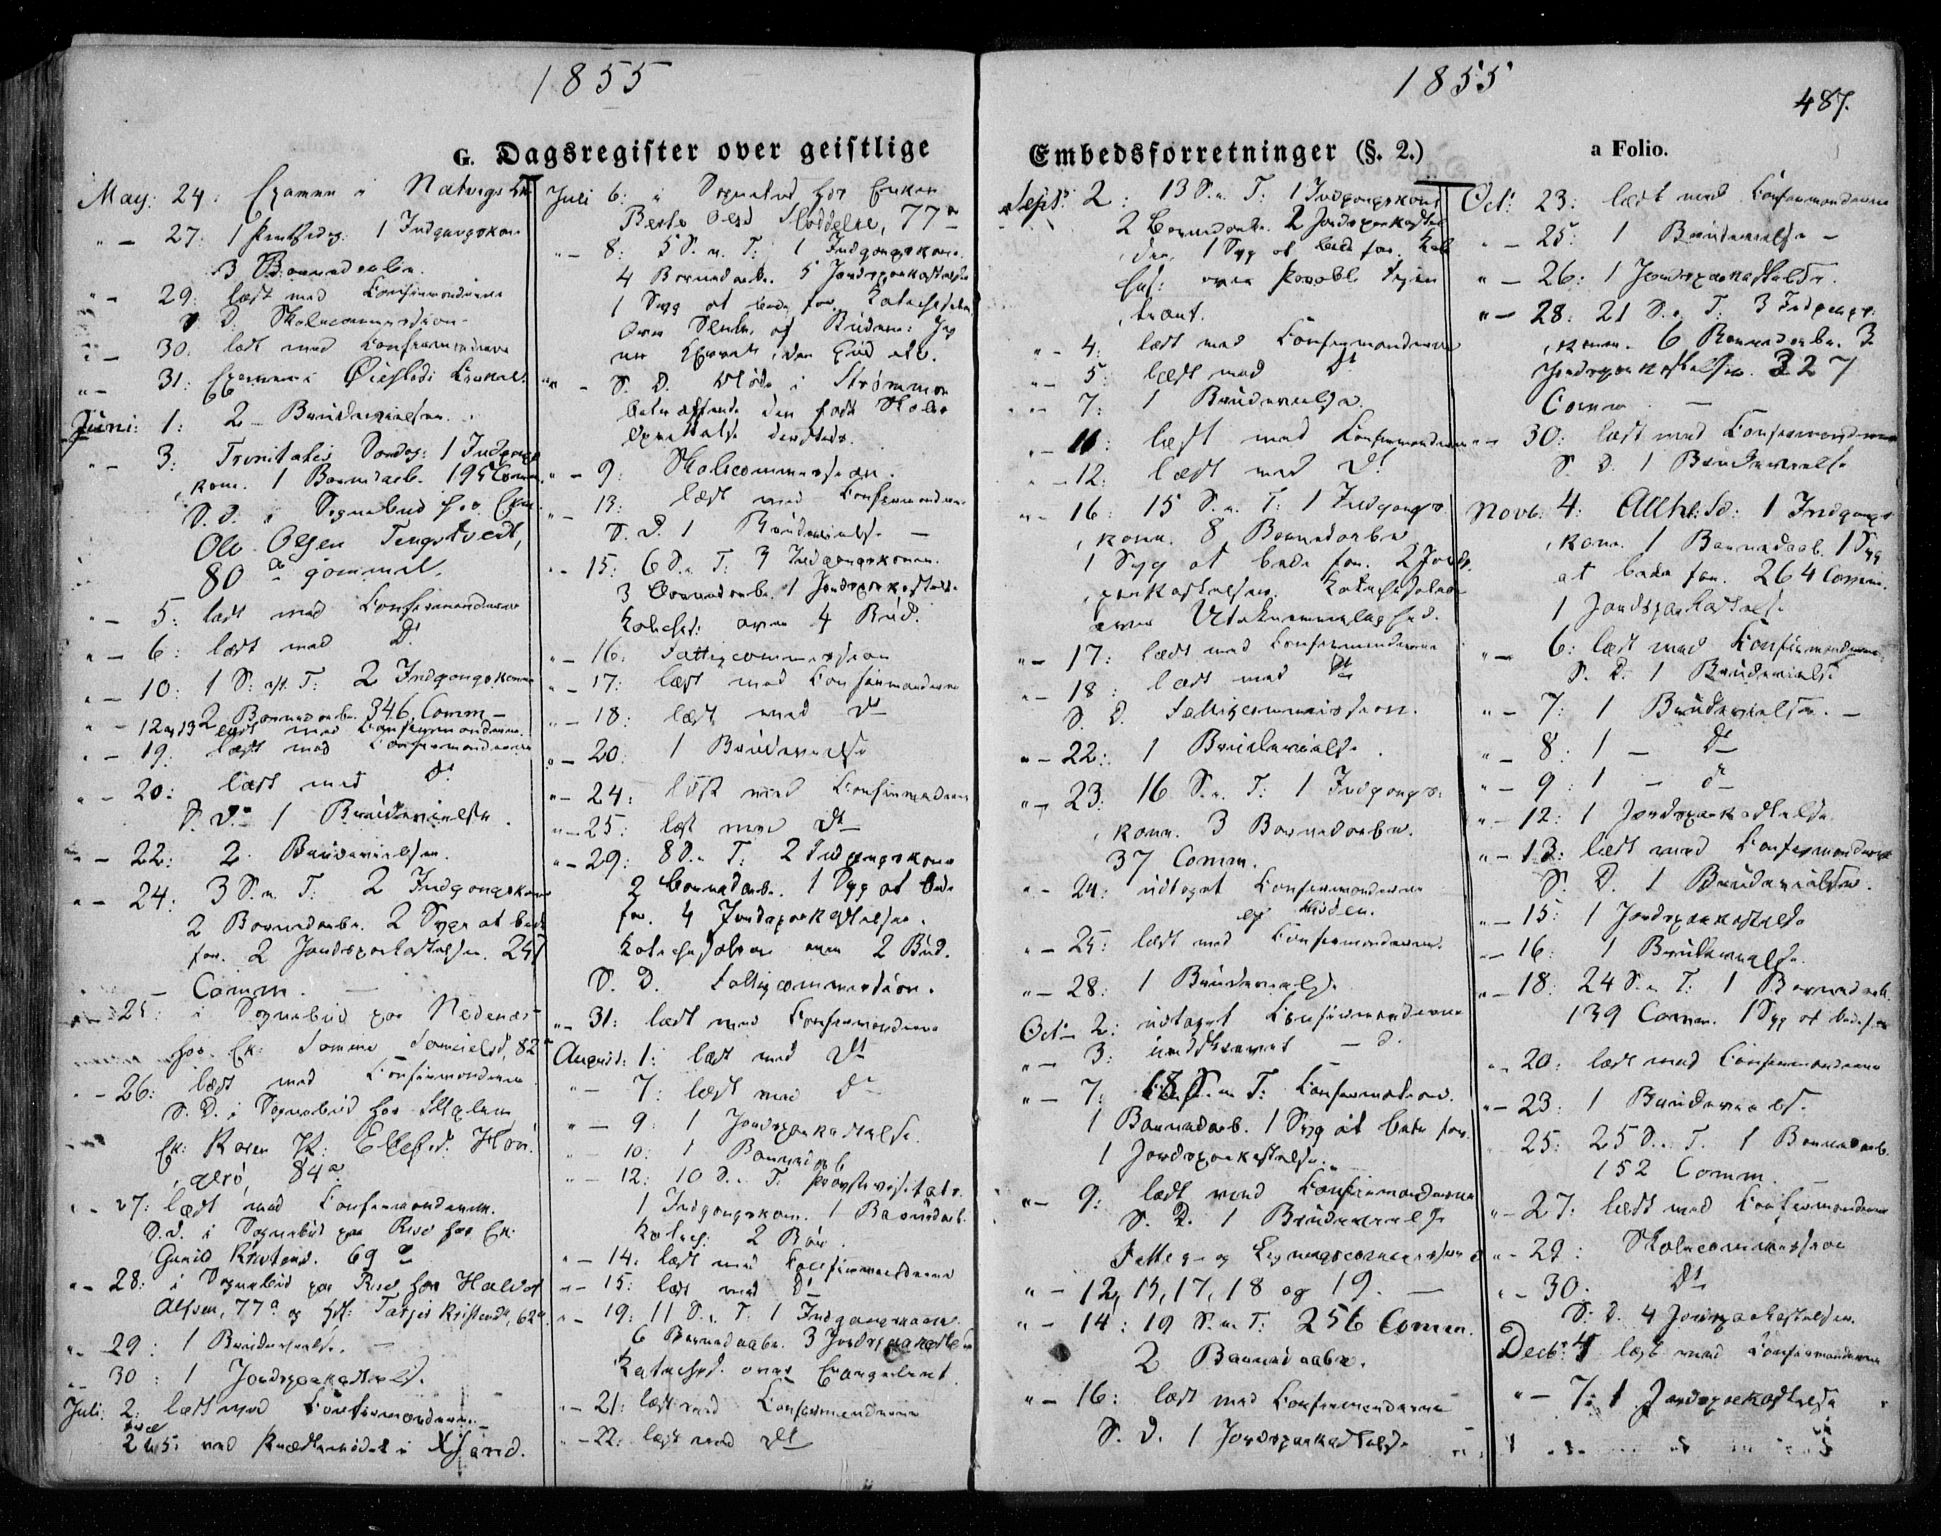 1855
G. Dagsregister over geistlige
May: 24: Examen i Natvigs
" — 27: 1 1 Indgangskone
3 Barnedaabe.
" — 29: læst med Confirmanderne
S. D. Skolecommission.
" — 30: læst med Confirmanderne
" — 31: Examen i Øiestads
Juni: 1: 2 Brudevielser.
" — 3: Trinitatis Søndag: 1 Indgangs
kone. 1 Barnedaab. 195 Comm.
S. D. i Sognebud hos
Ole Olsen Tengstvedt,
80 a gammel.
" — 5: læst med Confirmanderne
" — 6: læst med Dt
" — 10: 1 S. eft. T: 2 Indgangskoner
2 Barnedaabe. 346 Comm —
" — 12 og 13 læst med Confirmanderne
" — 19: læst med Confirmanderne
" — 20: læst med Dt
S. D. 1 Brudevielse.
" — 22: 2 Brudevielser.
" — 24: 3 S. e. T: 2 Indgangskoner
2 Barnedaabe. 2 Syge at bede
for. 2 Jordspaakastelser. 247
Comm. —
" — 25: i Sognebud paa Nedenæs
hos Ek: 82
" — 26: læst med Confirmanderne
S. D. i Sognebud hos
Ek: Karen
84 a
" — 27: læst med Confirmanderne.
S. D. i Sognebud paa Rise hos Ek:
Gunild 69 a
" — 28: i Sognebud paa Rise hos Halvor
Alfsen, 77 a og Tarjer 62 a
" — 29: 1 Brudevielse. —
" — 30: 1 Jordspaakastelse.
Juli: 2: læst med Confirmanderne
2 5: ved i
Juli 6: i Sognebud hos Enken
Berte 77 a
" — 8: 5 S. e. T: 1 Indgangskone.
4 Barnedaabe. 5 Jordspaakastelser
1 Syg at bede for. Katechisation
over af Budene: Jeg
er Herren din Gud etc.
S. D. Møde i Strømmen
betræffende den faste Skoles
Oprettelse dersteds.
" — 9: Skolecommission.
" — 13: læst med Confirmanderne
S. D. 1 Brudevielse —
" — 15: 6 S. e. T: 3 Indgangskoner.
3 Barnedaabe. 1 Jordspaakastelse
Kateches: over 4 Bud.
" — 16: Fattigcommission
" — 17: læst med Confirmanderne
" — 18: læst med Dt
" — 20: 1 Brudevielse
" — 24: læst med Confirmanderne
" — 25: læst med Dt
" — 29: 8 S. e. T: 2 Indgangskoner
2 Barnedaabe. 1 Syg at bede
for. 4 Jordspaakastelser.
Katechisation over 2 Bud.
S. D. Fattigcommission.
" — 31: læst med Confirmanderne
August: 1: læst med Dt
" — 7: læst med Dt
" — 9: 1 Jordspaakastelse.
" — 10: 1 Barnedaab
" — 12: 10 S. e. T. Provstevisitats.
1 Indgangskone. 1 Barnedaab.
Kateches: 2 Bud.
" — 14: læst med Confirmanderne
" — 15: læst med Dt
" — 19: 11 S. e. T. 1 Indgangskone
6 Barnedaabe. 3 Jordspaakastelser
Kateches. over Evangeliet.
" — 21: læst med Confirmanderne
" — 22: læst med Dt
1855
487.
Embedsforretninger (§. 2.)
a Folio.
Sept: 2: 13 S. e. T: 1 Indgangskone
2 Barnedaabe. 2 Jordspaakastel
ser. 1 Syg at bede for. Kate
ches: over
" — 4: læst med Confirmanderne
" — 5: læst med Dt
" — 7: 1 Brudevielse.
" — 11: læst med Confirmanderne
" — 12: læst med Dt
" — 16: 15 S. e. T: 1 Indgangs
kone. 8 Barnedaabe
1 Syg at bede for. 2 Jords
paakastelser. Katechisation
over Utaknemmelighed.
" — 17: læst med Confirmanderne
" — 18: læst med Dt
S. D. Fattigcommission.
" — 22: 1 Brudevielse.
" — 23: 16 S. e. T: 1 Indgangs
kone. 3 Barnedaabe.
37 Comm.
" — 24: udtaget Confirmanderne
" — 25: læst med Confirmanderne.
" — 28: 1 Brudevielse
Oct: — 2: udtaget Confirmanderne
" — 3: — d.
" — 7: 18 S. e. T: Confirmation.
1 Barnedaab. 1 Syg at bede for.
1 Jordspaakastelse.
" — 9: læst med Confirmanderne
S. D. 1 Brudevielse
Fattig- og Ligningscommission d
" — 12, 15, 17, 18 og 19. —
" — 14: 19 S. e. T: 256 Comm.
2 Barnedaabe.
" — 16: læst med Confirmanderne
S. D. 1 Jordspaakastelse
Oct: 23: læst med Confirmanderne
" — 25: 1 Brudevielse —
" — 26: 1 Jordspaakastelse.
" — 28: 21 S. e. T: 3 Indgangs
koner. 6 Barnedaabe. 3
Jordspaakastelser. 327
Comm —
" — 30: læst med Confirmanderne
S. D. 1 Brudevielse
Novb: 4: Allhl: Sd: 1 Indgangs
kone. 1 Barnedaab. 1 Syg
at bede for. 264 Comm.
1 Jordspaakastelse
" — 6: læst med Confirmanderne
S. D. 1 Brudevielse
" — 7: 1 Brudevielse. —
" — 8: 1 — Dt
" — 9: 1 — d
" — 12: 1 Jordspaakastelse.
" — 13: læst med Confirmanderne
S. D. 1 Brudevielse.
" — 15: 1 Jordspaakastelse
" — 16: 1 Brudevielse.
" — 18: 24 S. e. T: 1 Barnedaab.
139 Comm. 1 Syg at bede for
" — 20: læst med Confirmanderne
" — 23: 1 Brudevielse.
" — 25: 25 S. e. T. 1 Barnedaab.
152 Comm. —
" — 27: læst med Confirmanderne
" — 29: Skolecommission
" — 30: Dt
S. D. 4 Jordspaakastelser.
Decb: 4 læst med Confirmanderne
" — 7: 1 Jordspaakastelse